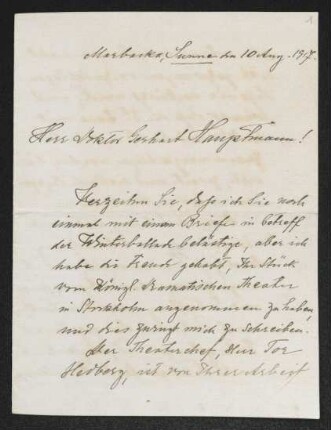 Marbacka, Sunne den 10 Aug. 1917.
Herr Doktor Gerhart Hauptmann!
Verzeihen Sie, dass ich Sie noch
einmal mit einem Briefe in betreff
der Winterballade belästige, aber ich
habe die Freude gehabt, Ihr Stück
vom Königl. Dramatischen Theater
in Stockholm angenommen zu haben,
und dies zwingt mich zu schreiben.
Der Theaterchef, Herr Tor
Hedberg, ist von Ihrer Arbeit